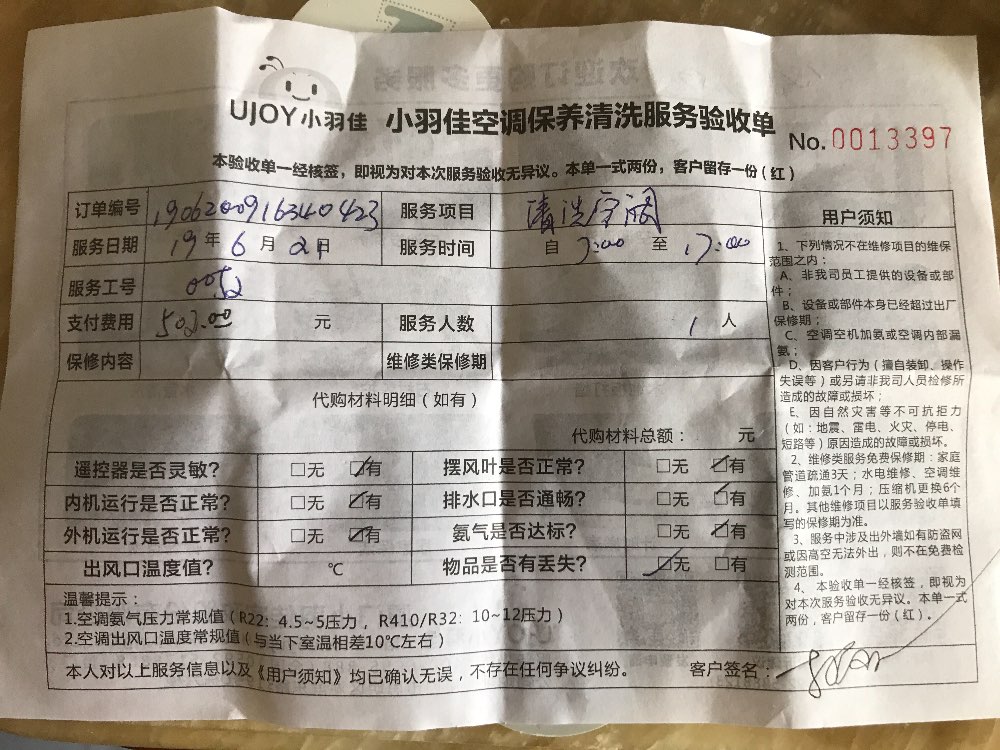 UJOY小羽佳 小羽佳空调保养清洗服务验收单
No.0013397
本验收单一经核签，即视为对本次服务验收无异议。本单一式两份，客户留存一份（红）
订单编号 1906200916340423 服务项目
服务日期 19 年 6 月 21日 服务时间 自 7:00 至 17:00
服务工号 0052
支付费用 502.00 元 服务人数 1 人
保修内容 维修类保修期
代购材料明细（如有）
代购材料总额： 元
遥控器是否灵敏? □无 ☑有 摆风叶是否正常? □无 ☑有
内机运行是否正常? □无 ☑有 排水口是否通畅? □无 ☑有
外机运行是否正常? □无 ☑有 氨气是否达标? □无 ☑有
出风口温度值? ℃ 物品是否有丢失? ☑无 □有
温馨提示：
1.空调氨气压力常规值（R22: 4.5~5压力， R410/R32: 10~12压力）
2.空调出风口温度常规值（与当下室温相差10℃左右）
本人对以上服务信息以及《用户须知》均已确认无误，不存在任何争议纠纷。 客户签名：
用户须知
1、下列情况不在维修项目的维保
范围之内：
A、非我司员工提供的设备或部
件；
B、设备或部件本身已经超过出厂
保修期；
C、空调空机加氨或空调内部漏
氨；
D、因客户行为（擅自装卸、操作
失误等）或另请非我司人员检修所
造成的故障或损坏；
E、因自然灾害等不可抗拒力
（如：地震、雷电、火灾、停电、
短路等）原因造成的故障或损坏。
2、维修类服务免费保修期：家庭
管道疏通3天；水电维修、空调维
修、加氨1个月；压缩机更换6个
月。其他维修项目以服务验收单填
写的保修期为准。
3、服务中涉及出外墙如有防盗网
或因高空无法外出，则不在免费检
测范围。
4、本验收单一经核签，即视为
对本次服务验收无异议。本单一式
两份，客户留存一份（红）。